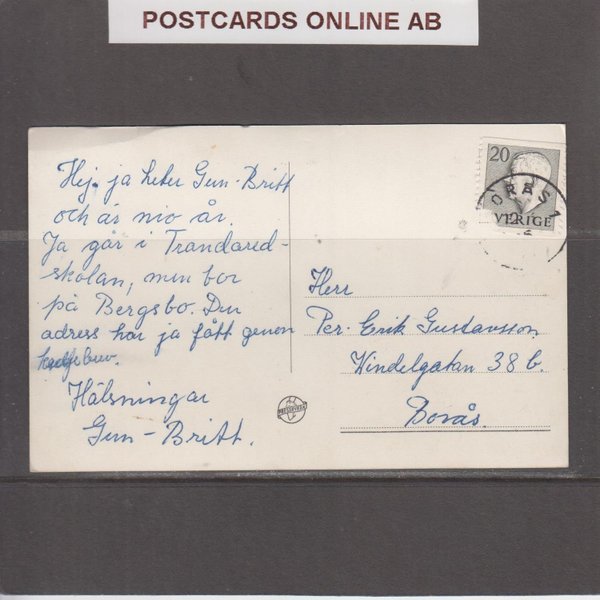 POSTCARDS ONLINE AB
Hej. ja heter Gun-Britt
och är nio år.
Ja går i Trandared-
skolan, men bor
på Bergsbo. Din
adress har ja fått genom
brev.
Hälsningar
Gun-Britt.
20
SVERIGE
BORÅS 1
Herr
Per-Erik Gustavsson
Windelgatan 38 b.
Borås.